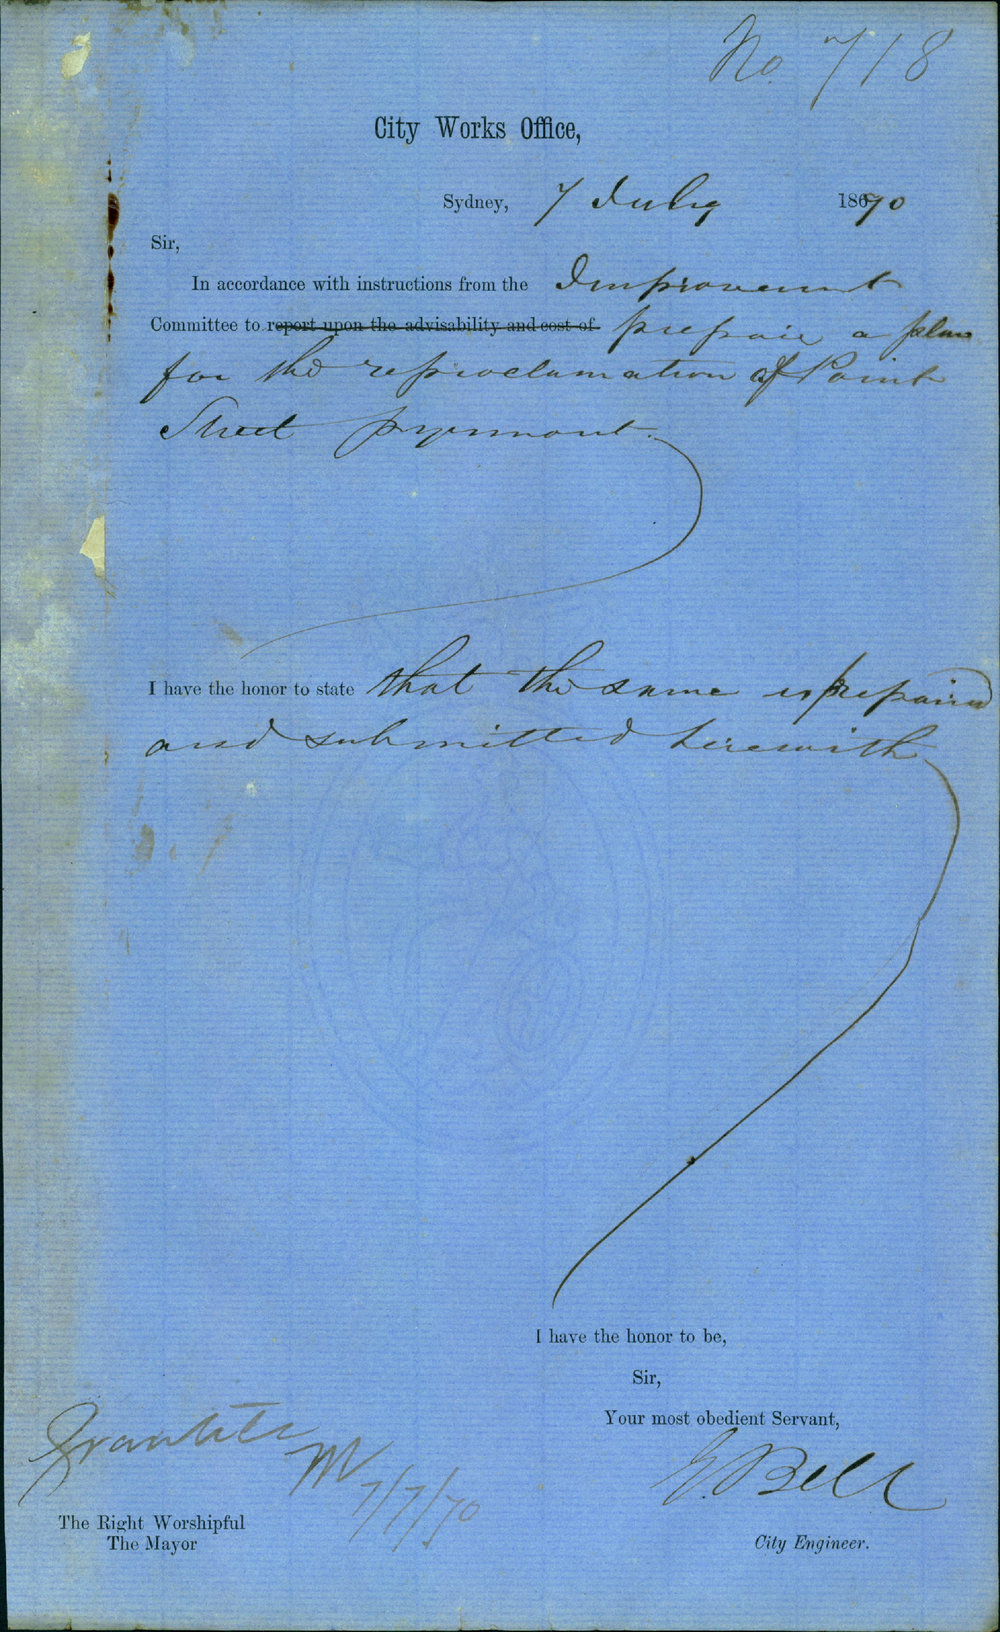 No. 718
City Works Office,
Sydney, 7 July 1870
Sir,
In accordance with instructions from the Improvement
Committee to report upon the advisability and cost of prepair a plan
for the reproclamation of Point
Street pyrmont.
I have the honor to state that the same is prepaired
and submitted herewith
I have the honor to be,
Sir,
Your most obedient Servant,
E. Bell
7/7/70
The Right Worshipful
The Mayor
City Engineer.